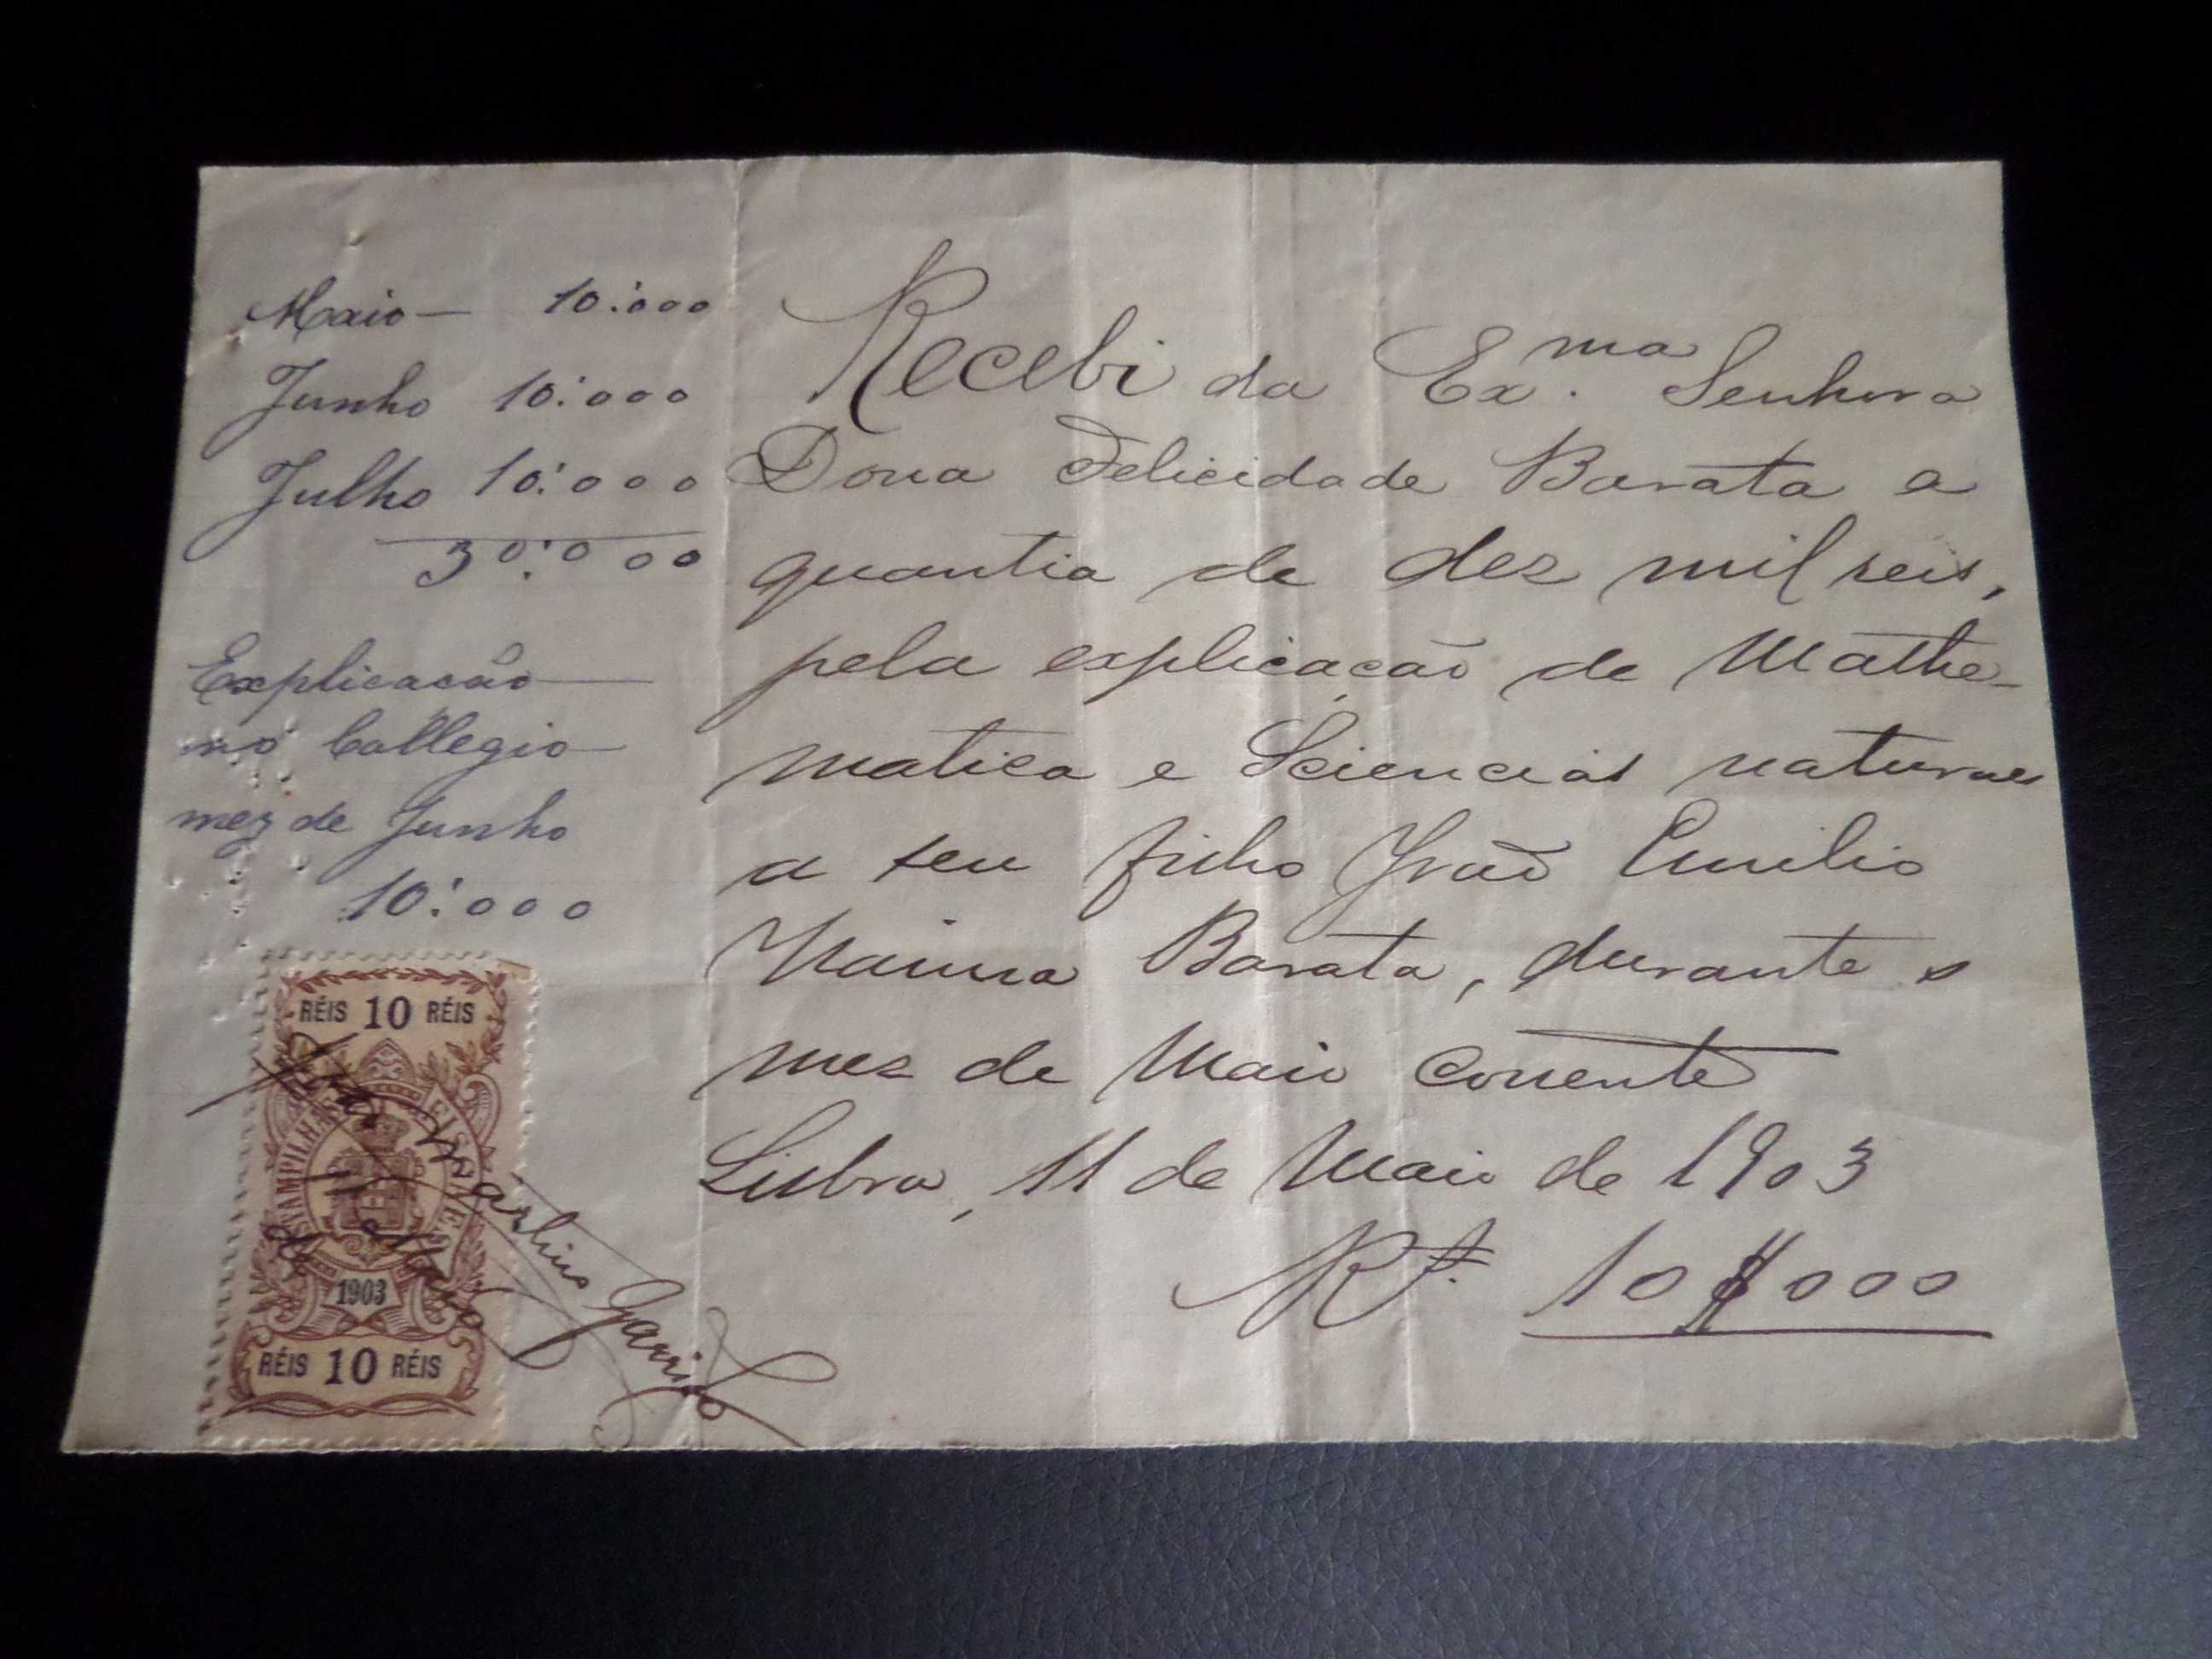 Maio — 10:000
Junho 10:000
Julho 10:000
30:000
Explicacão
no Collegio
mez de Junho
10:000
Recebi da Ex.ma Senhora
Dona Felicidade Barata a
quantia de dez mil reis,
pela explicação de Mathe-
matica e Sciencias naturaes
a seu filho João Emilio
Barata, durante o
mez de Maio corrente
Lisboa, 11 de Maio de 1903
Rs. 10$000
RÉIS 10 RÉIS
ESTAMPILHA FISCAL
1903
RÉIS 10 RÉIS
11 de Maio
Martins Garrido